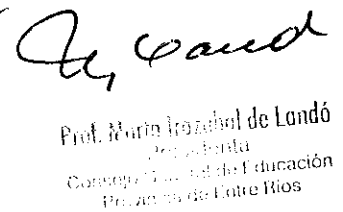 Prof. Marta Irazabal de Landó
Presidenta
Consejo General de Educación
Provincia de Entre Ríos